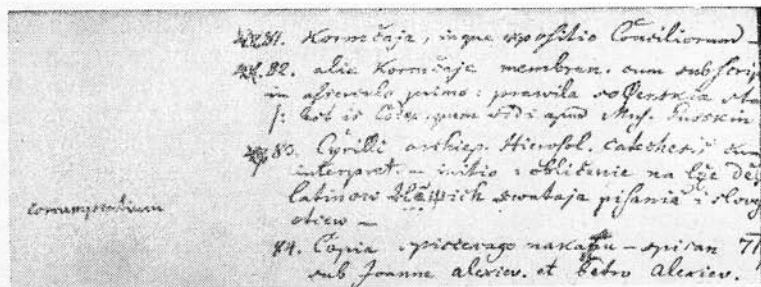 81. Kormčaja, inque expositio Conciliorum –
82. alia Kormčaja membran. cum subscrip
in primo : prawila
/: est is Codex quem vidi apud Mus. Pusskin
83. Cyrilli archiep. Hierosol. catechesis cum
interpret. – initio : obličenie na lže
latinow swataja pisania i slov
otcew –
corrumpentium
84. Copia piscewago nakazu – spisan 71
sub Joanne Alexiew. et Petro Alexiew.